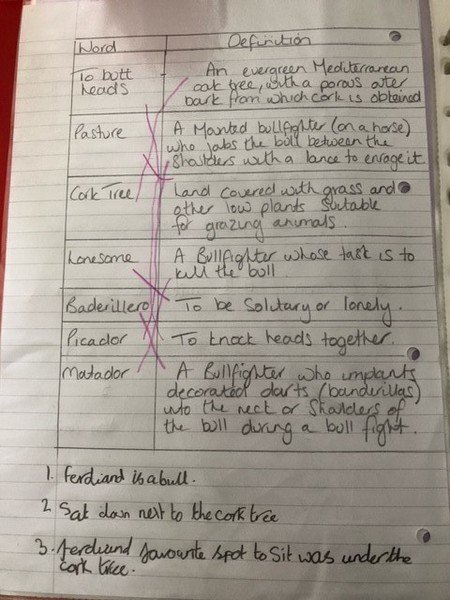 Word Definition
To butt heads An evergreen Mediterranean
oak tree, with a porous outer
bark from which cork is obtained
Pasture A Mounted bullfighter (on a horse)
who jabs the bull between the
Shoulders with a lance to enrage it
Cork Tree Land covered with grass and
other low plants suitable
for grazing animals.
Lonesome A Bullfighter whose task is to
kill the bull
Baderillero To be Solitary or lonely.
Picador To knock heads together.
Matador A Bullfighter who implants
decorated darts (banderillas)
into the neck or Shoulders of
the bull during a bull fight.
1. Ferdinand is a bull.
2 Sat down next to the cork tree
3. ferdinand favourite spot to Sit was under the
cork tree.